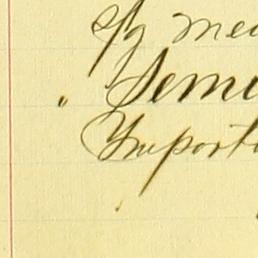 of med
" Seme
Importa